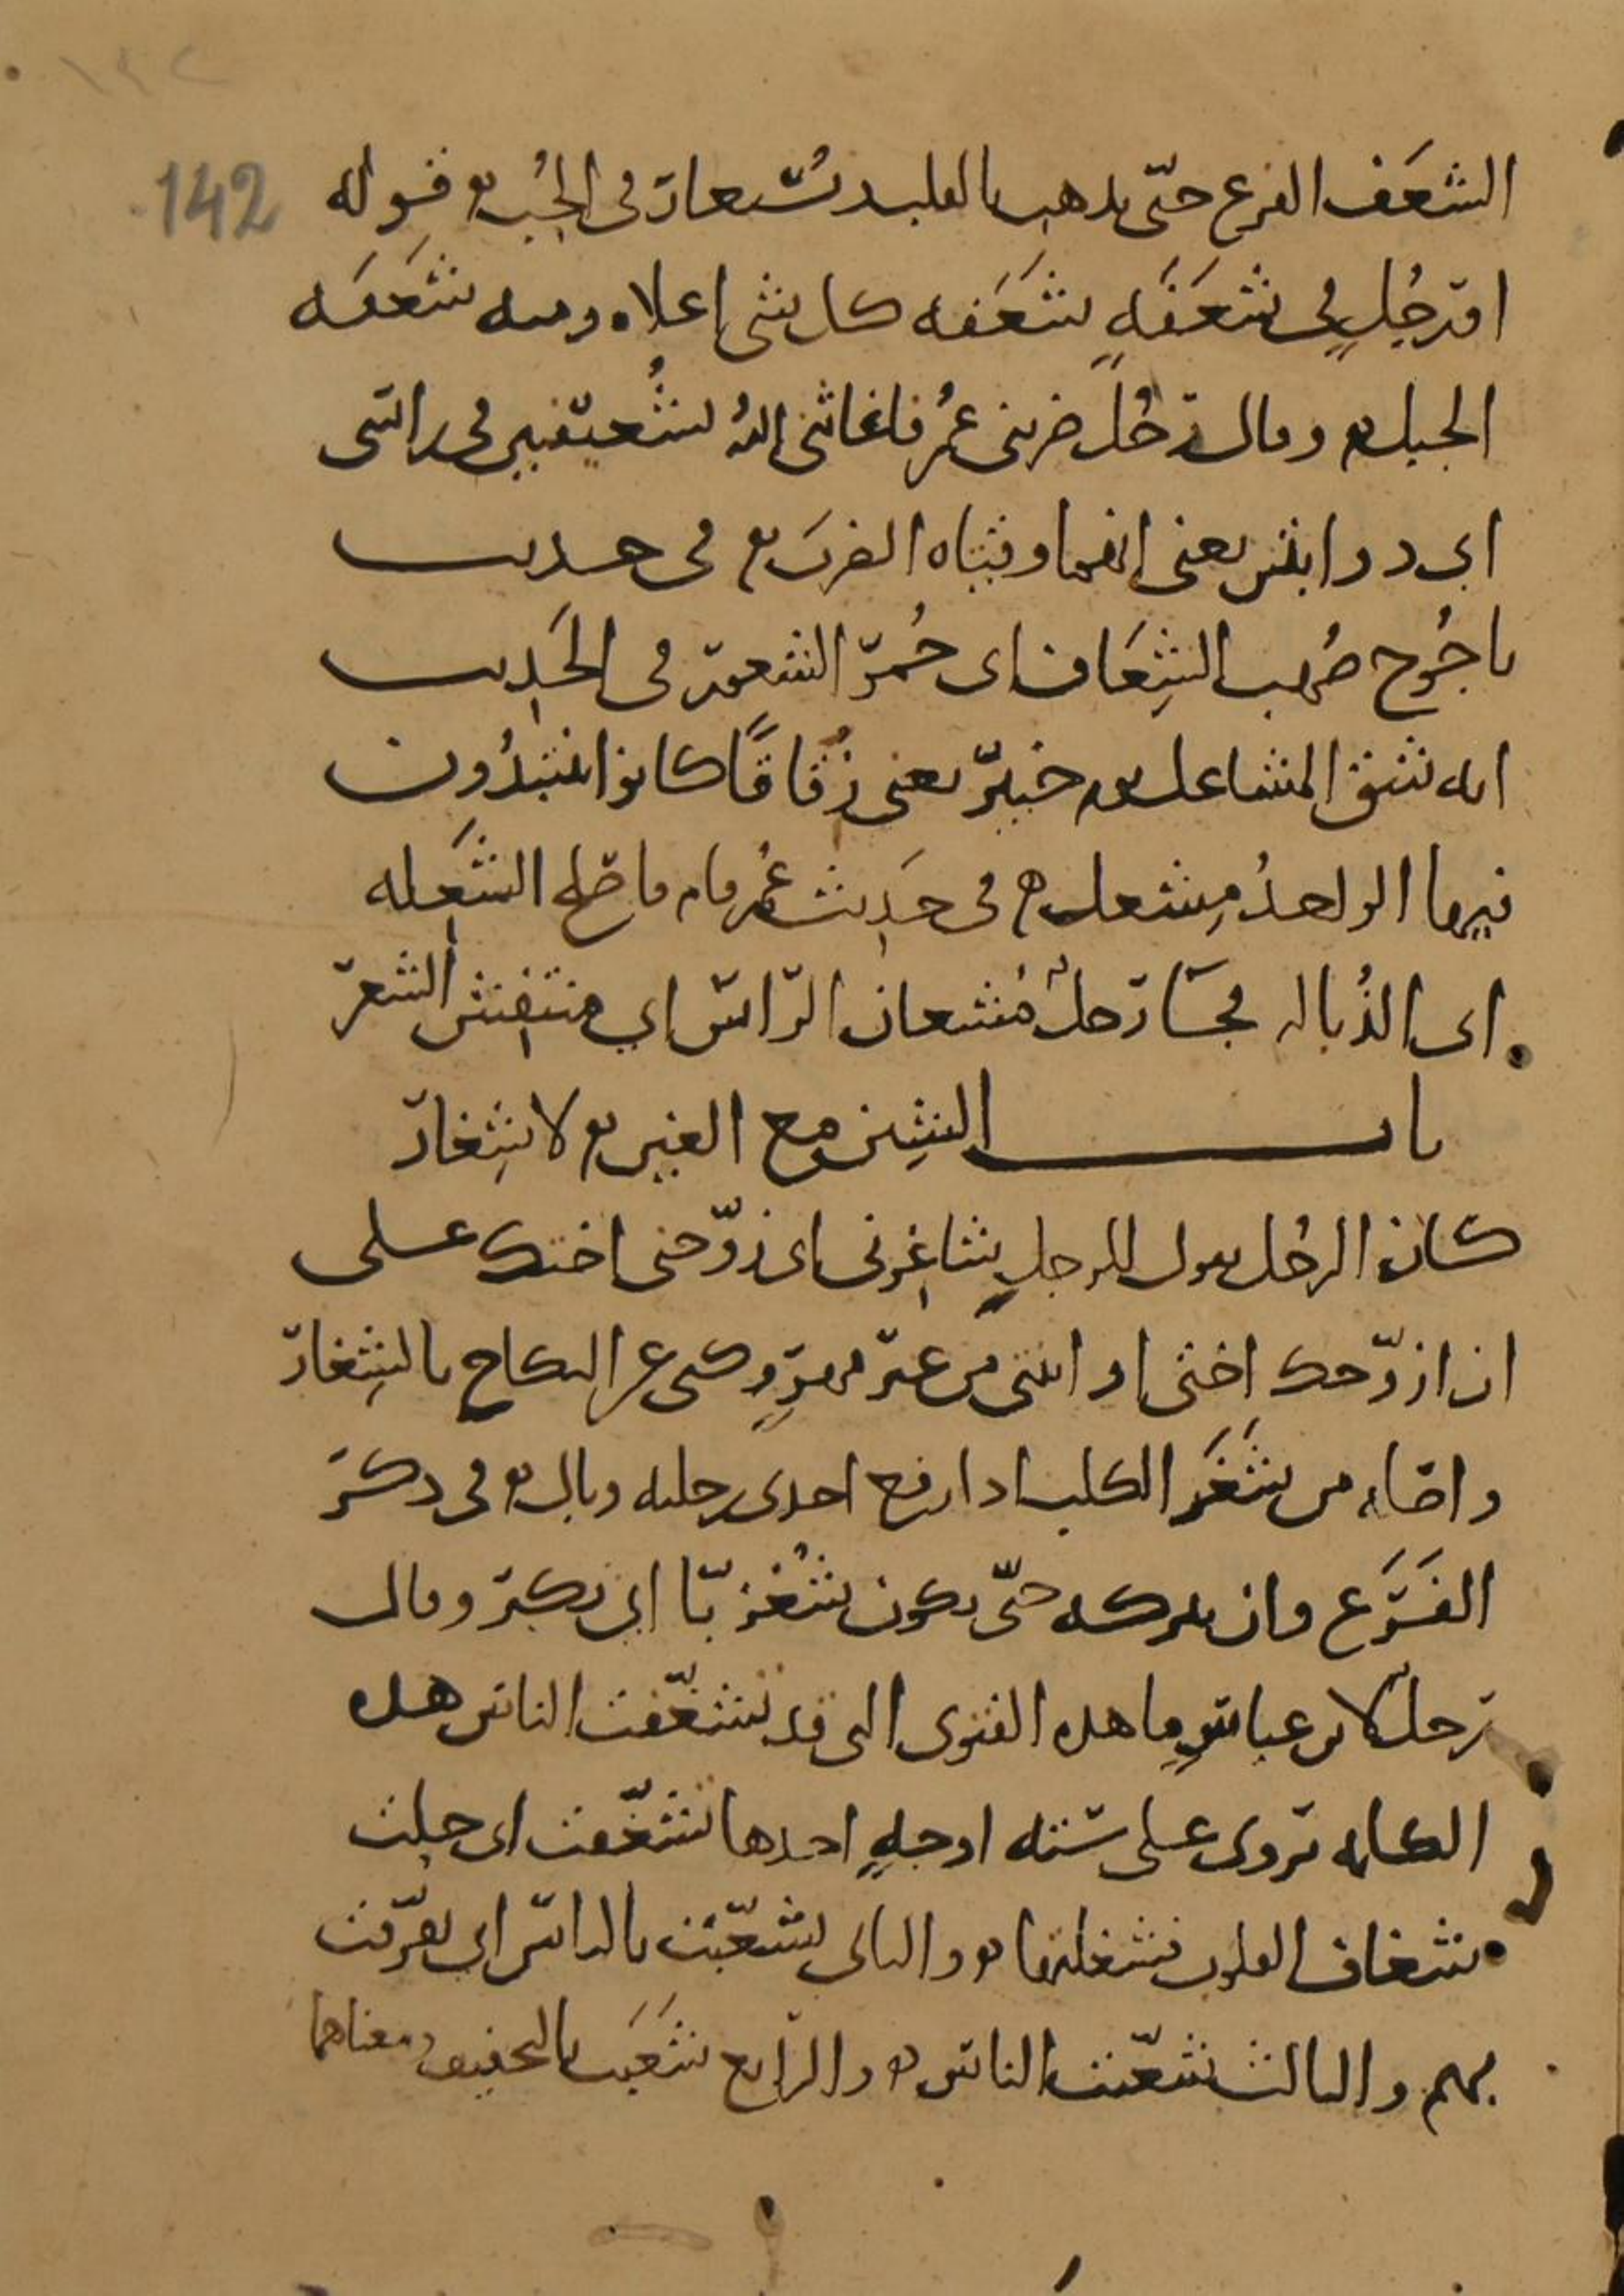 142
الشَعَف الفزع حتّى يذهب بالقلب ويُستعار في الحُبّ قوله
او رجُلٍ في شَعَفَةٍ شَعَفه كل شى اعلاه ومنه شَعَفَه
الجبل وقال رجُلٌ ضربنى عُمرُ فاغاثنى اللهُ بشُعيفتين فى راسى
اى ذوابتين يعنى انهما وقتاه الضرب فى حديث
ياجُوج صُهب الشِعَاف اى حُمرّ الشعور فى الحَدِيث
انه شق المشاعل يوم خيبرّ يعنى زُقاقًا كانوا ينتبذُون
فيها الواحدُ مِشعل فى حَدِيث عُمر قام فاصلح الشَعِيله
اى الذُباله فجَا رَجلٌ مُشعان الرّاس اي منتفش الشعرّ
باب الشِين مع الغين لا شِغار
كان الرجُل يقول للرجلِ شاغِرنى اى زوّجنى اختك على
ان ازوّجك اختى او ابنتى من غير مهرٍ وكنى عن النكاح بالشِغار
واصله من شَغَر الكلب اذا رفع احدى رجليه وبال فى ذكر
الفَرَع وان يتركه حتّى يكون شُغزبّا اى يكبر وقال
رجلٌ لابن عباسٍ ما هذه الفتوى التى قد تشغّفت الناس هذه
الكلمه تروى على ستة اوجهٍ احدها تشغّفت اى حلت
شغاف القلوب فشغلتها والثانى تشعّبت بالناس اى تفرّقت
بهم والثالث تشغّبت الناس والرابع شَغَبَت بالتخفيف ومعناهما